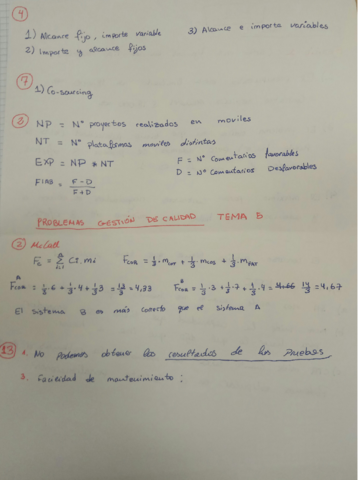 4
1) Alcance fijo, importe variable
3) Alcance e importe variables
2) Importe y alcance fijos
7
1) Co-sourcing
8
NP = Nº proyectos realizados en moviles
NT = Nº plataformas moviles distintas
EXP = NP * NT
F = Nº Comentarios favorables
D = Nº Comentarios Desfavorables
FIAB = F-D / F+D
PROBLEMAS GESTIÓN DE CALIDAD TEMA 5
2 McCall
Fc = Σ Ci.mi Fcor = 1/3.m + 1/3.m + 1/3.m
A Fcor = 1/3.6 + 1/3.4 + 1/3.3 = 13/3 = 4,33
B Fcor = 1/3.3 + 1/3.7 + 1/3.4 = 14/3 = 4,67
El sistema B es más correcto que el sistema A
13 1. No podemos obtener los resultados de las pruebas
3. Facilidad de mantenimiento: